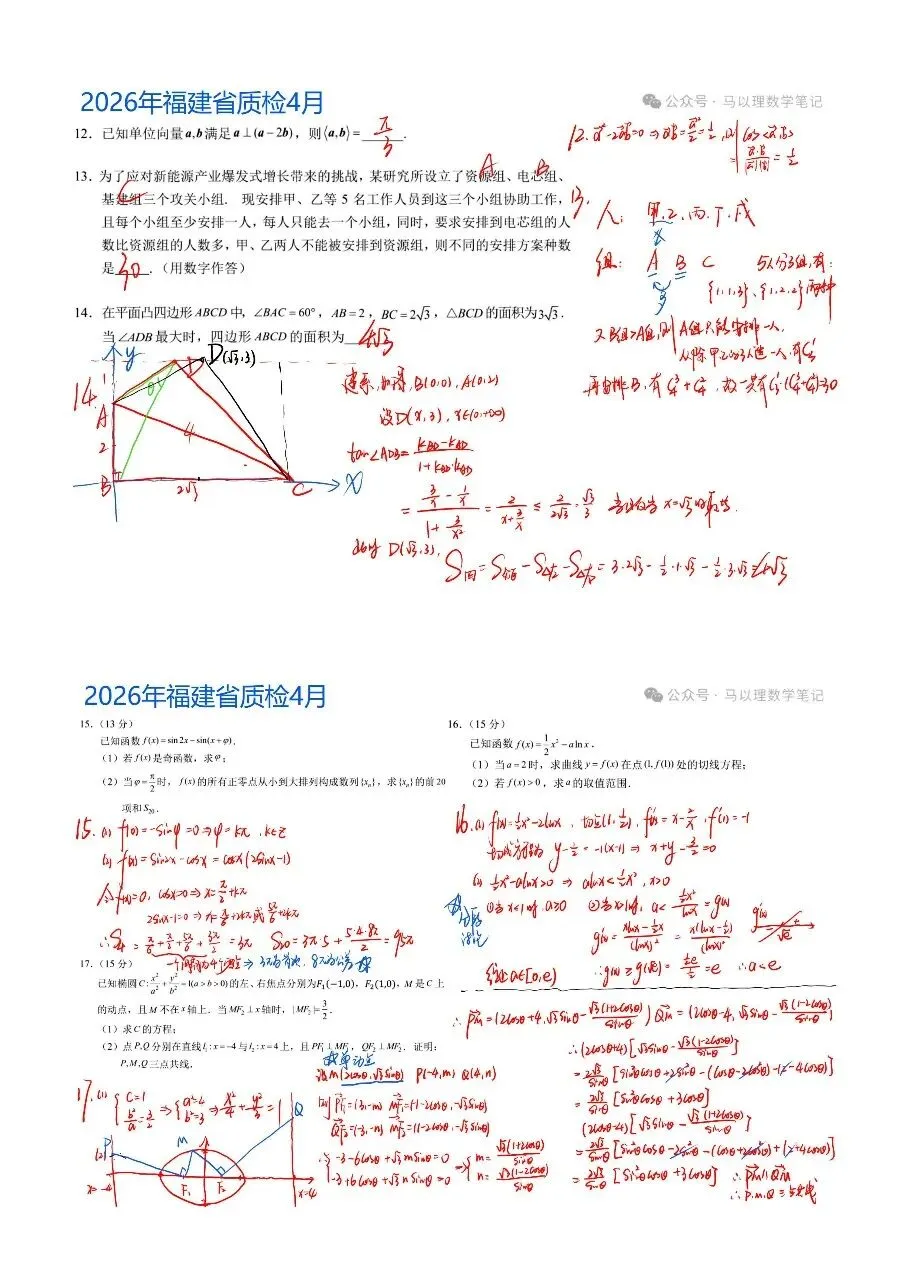 2026年福建省质检4月
公众号 · 马以理数学笔记
12. 已知单位向量 a,b 满足 a⊥(a−2b)，则⟨a,b⟩= π/3 .
13. 为了应对新能源产业爆发式增长带来的挑战，某研究所设立了资源组、电芯组、
A B C
基建组三个攻关小组. 现安排甲、乙等 5 名工作人员到这三个小组协助工作，
且每个小组至少安排一人，每人只能去一个小组，同时，要求安排到电芯组的人
数比资源组的人数多，甲、乙两人不能被安排到资源组，则不同的安排方案种数
是 30 .（用数字作答）
14. 在平面凸四边形 ABCD 中，∠BAC=60°，AB=2，BC=2√3，△BCD 的面积为 3√3 .
当 ∠ADB 最大时，四边形 ABCD 的面积为 4√3
12. a²−2ab=0 ⇒ ab=a²/2=1/2, 则 cos<a,b>
= a·b/|a||b| = 1/2
13.
人: 甲.乙.丙.丁.戊
组: A B C 5人分3组,有:
{1,1,3}、{1,2,2}两种
又B组>A组,则A组只能安排一人,
从除甲乙的3人选一人,有C₃¹
再安排B,有C₄²+C₄³, 故一共有C₃¹(C₄²+C₄³)=30
14.
y D(√3,3)
D
1
θ
A
2
4
B 2√3 C x
建系,如图,B(0,0),A(0,2)
设D(x,3), x∈(0,+∞)
tan∠ADB= (k_BD−k_AD)/(1+k_BD·k_AD)
= (3/x − 1/x)/(1+3/x²) = 2/(x+3/x) ≤ 2/(2√3) = √3/3 当且仅当 x=√3 时取等.
此时 D(√3,3),
S四=S矩−S△左−S△右=3·2√3−1/2·1·√3−1/2·3·√3=4√3
2026年福建省质检4月
公众号 · 马以理数学笔记
15.（13 分）
已知函数 f(x)=sin2x−sin(x+φ).
（1）若 f(x) 是奇函数，求 φ；
（2）当 φ=π/2 时，f(x) 的所有正零点从小到大排列构成数列 {xₙ}，求 {xₙ} 的前 20
项和 S₂₀ .
15. (1) f(0)=−sinφ=0⇒φ=kπ, k∈Z
(2) f(x)=sin2x−cosx=cosx(2sinx−1)
令f(x)=0, cosx=0⇒x=π/2+kπ
2sinx−1=0⇒x=π/6+2kπ或5π/6+2kπ
∴S₄=π/6+π/2+5π/6+3π/2=3π S₂₀=3π·5+5·4·8π/2=95π
一个周期为4个零点⇒3π为首项,8π为公差
16.（15 分）
已知函数 f(x)=1/2 x²−a ln x .
（1）当 a=2 时，求曲线 y=f(x) 在点 (1, f(1)) 处的切线方程；
（2）若 f(x)>0，求 a 的取值范围.
16. (1) f(x)=1/2x²−2lnx, 切点(1,1/2), f'(x)=x−2/x, f'(1)=−1
切线方程为 y−1/2=−1(x−1) ⇒ x+y−3/2=0
(2) 1/2x²−alnx>0 ⇒ alnx<1/2x², x>0
分离
讨论
①当x<1时, a≥0 ②当x>1时, a< (1/2x²)/lnx=g(x)
g'(x)= (xlnx−1/2x)/(lnx)² = x(lnx−1/2)/(lnx)²
g'(x) √e
综上a∈[0,e) ∴g(x)≥g(√e)= (1/2e)/(1/2)=e ∴a<e
17.（15 分）
已知椭圆 C: x²/a²+y²/b²=1(a>b>0) 的左、右焦点分别为 F₁(−1,0)，F₂(1,0)，M 是 C 上
的动点，且 M 不在 x 轴上. 当 MF₂⊥x 轴时，|MF₂|=3/2 .
（1）求 C 的方程；
（2）点 P,Q 分别在直线 l₁: x=−4 与 l₂: x=4 上，且 PF₁⊥MF₁，QF₂⊥MF₂. 证明：
P,M,Q 三点共线.
17. (1) {c=1 b²/a=3/2 ⇒ {a²=4 b²=3 ⇒ x²/4+y²/3=1
P M Q
F₁ F₂
x=−4 x=4
设M(2cosθ,√3sinθ) P(−4,m) Q(4,n)
(2) PF₁=(3,−m) MF₁=(−1−2cosθ,−√3sinθ)
QF₂=(−3,−n) MF₂=(1−2cosθ,−√3sinθ)
∴{−3−6cosθ+√3msinθ=0 −3+6cosθ+√3nsinθ=0
⇒{m=√3(1+2cosθ)/sinθ n=√3(1−2cosθ)/sinθ
∴PM=(2cosθ+4,√3sinθ−√3(1+2cosθ)/sinθ) QM=(2cosθ−4,√3sinθ−√3(1−2cosθ)/sinθ)
∴(2cosθ+4)[√3sinθ−√3(1−2cosθ)/sinθ]
=2√3/sinθ[sin²θcosθ+2sin²θ−(cosθ−2cos²θ)−(2−4cosθ)]
=2√3/sinθ[sin²θcosθ+3cosθ]
(2cosθ−4)[√3sinθ−√3(1+2cosθ)/sinθ]
=2√3/sinθ[sin²θcosθ−2sin²θ−(cosθ+2cos²θ)+(2+4cosθ)]
=2√3/sinθ[sin²θcosθ+3cosθ] ∴PM∥QM
∴P.M.Q三点共线